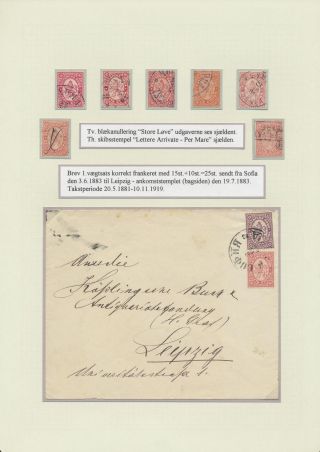 Tv. blækanullering "Store Løve" udgaverne ses sjældent.
Th. skibsstempel "Lettere Arrivate - Per Mare" sjælden.
Brev 1.vægtsats korrekt frankeret med 15st.+10st.=25st. sendt fra Sofia
den 3.6.1883 til Leipzig - ankomststemplet (bagsiden) den 19.7.1883.
Takstperiode 20.5.1881-10.11.1919.
An die
Antiquariatshandlung
Leipzig
Universitätsstraße 1.